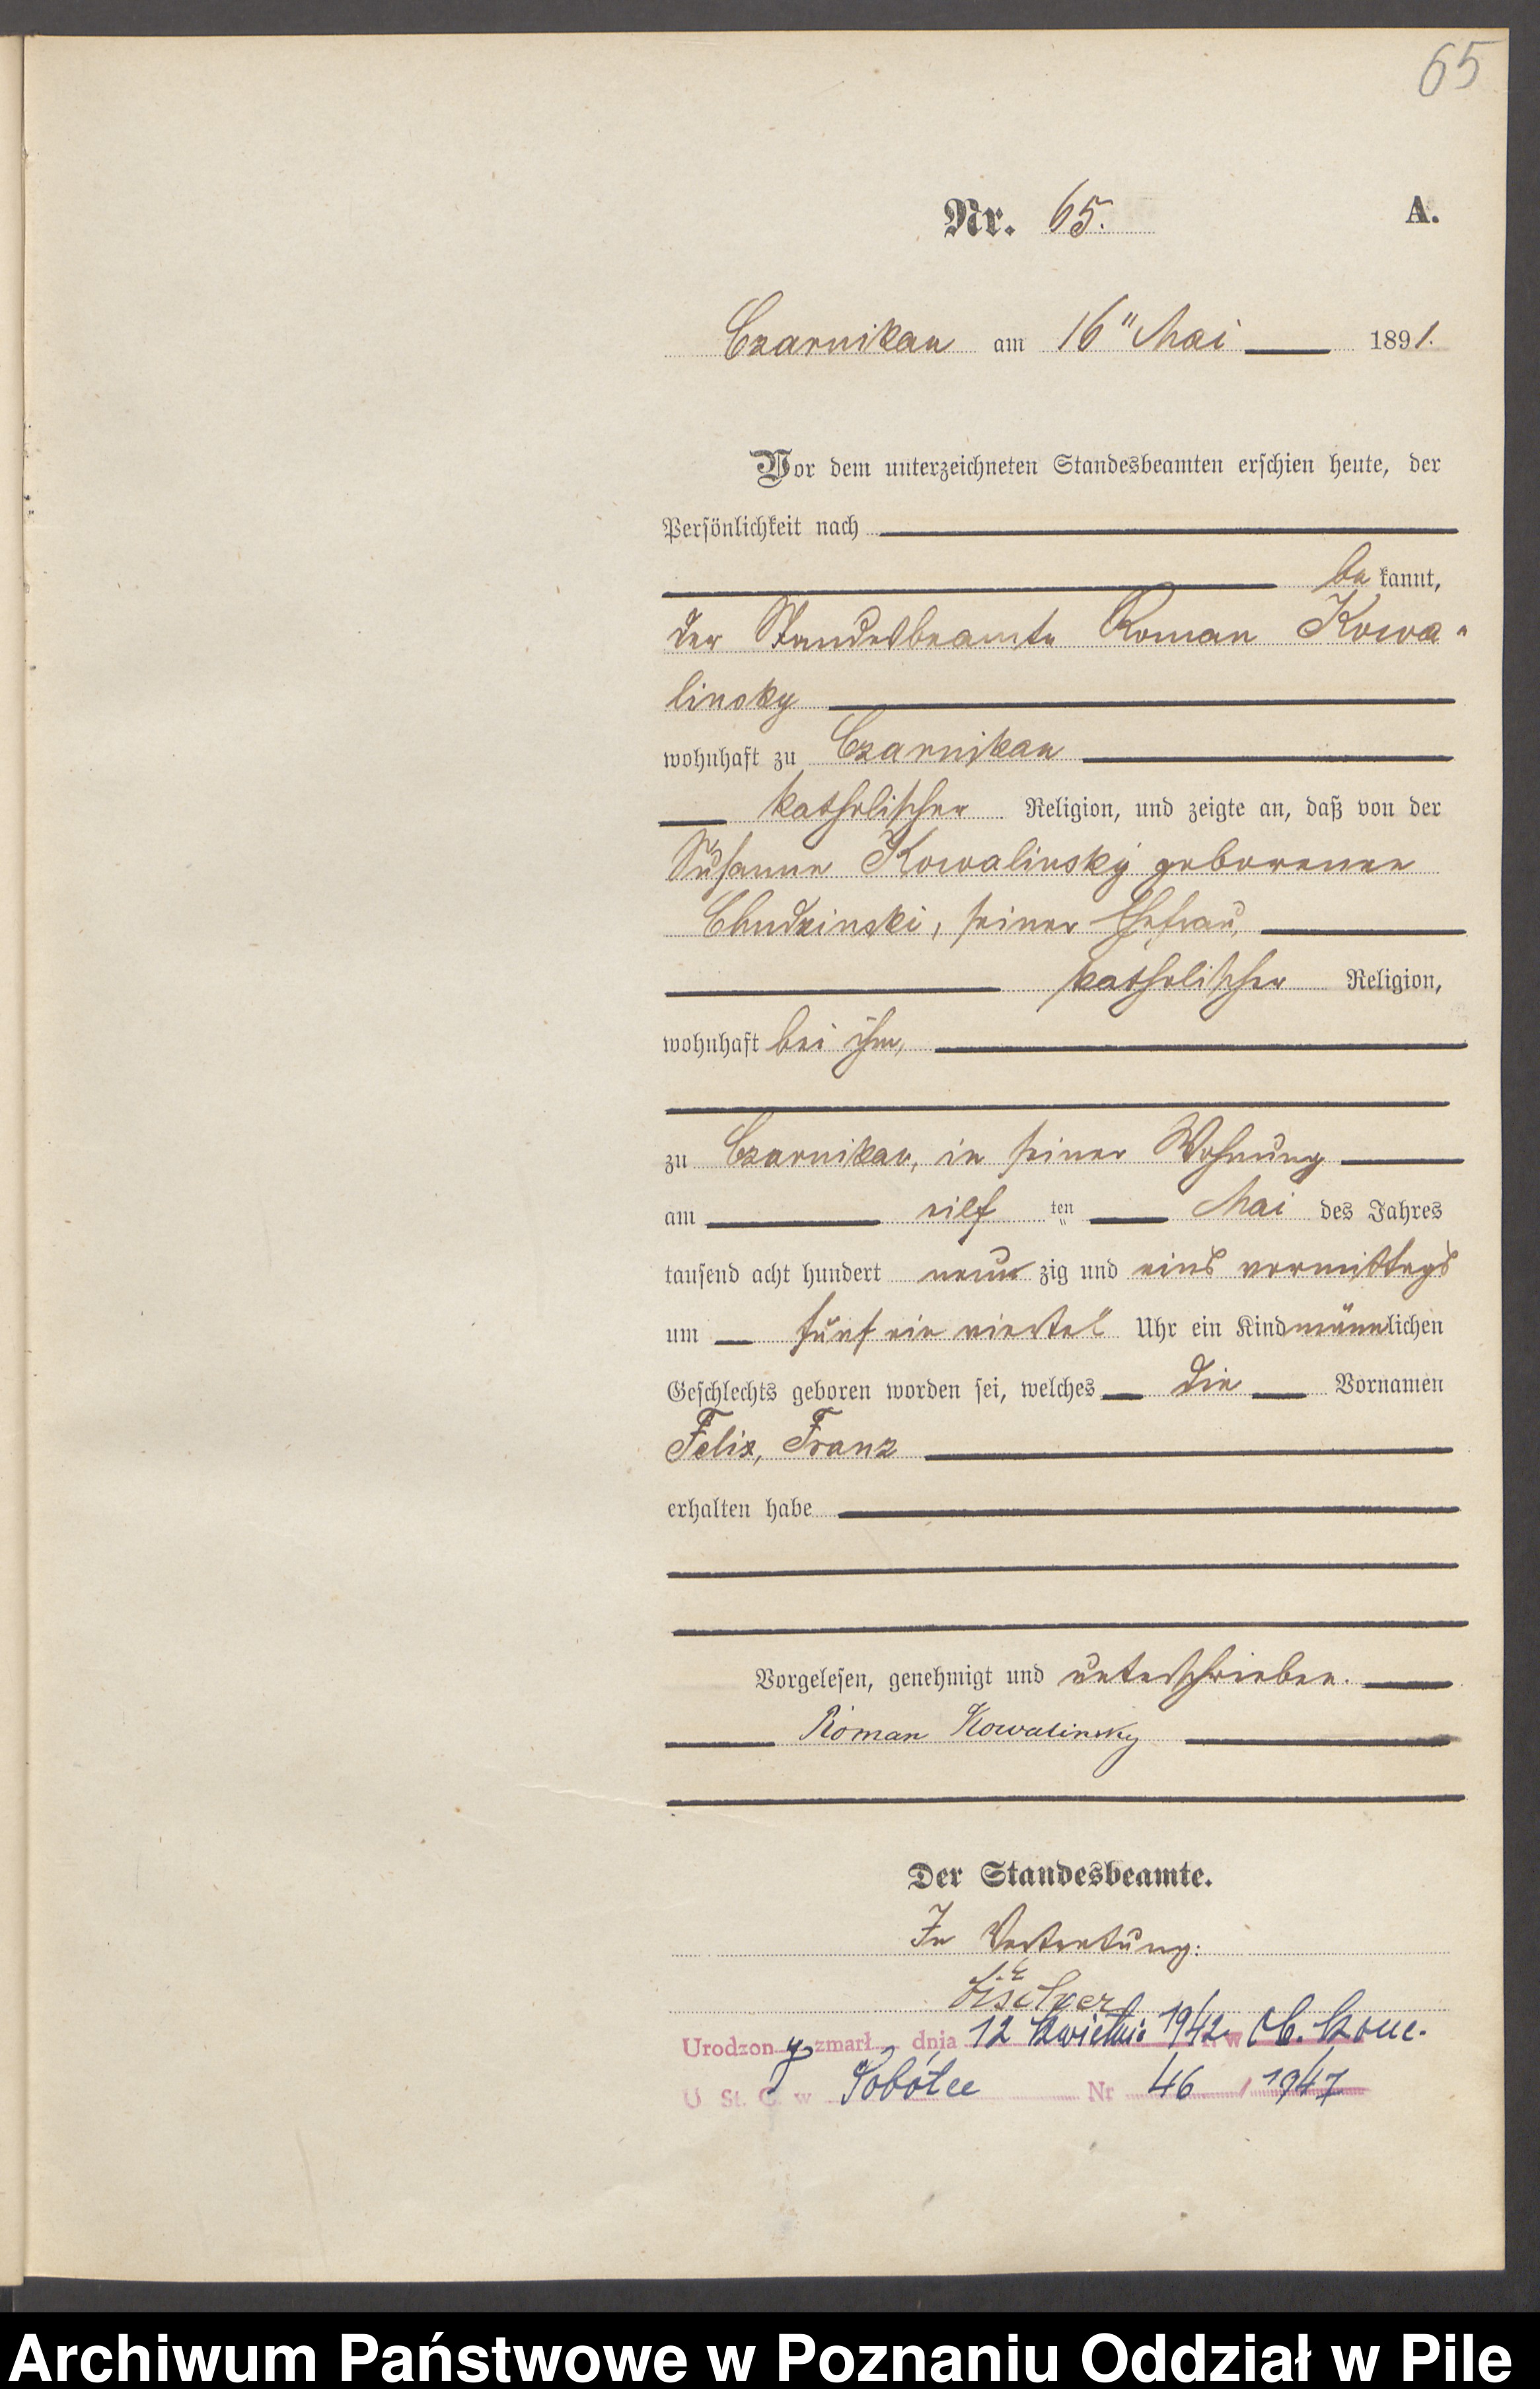 65
Nr. 65. A.
Czarnikau am 16ten Mai 1891.
Vor dem unterzeichneten Standesbeamten erschien heute, der
Persönlichkeit nach
be kannt,
der Standesbeamte Roman Kowa-
linsky
wohnhaft zu Czarnikau
katholischer Religion, und zeigte an, daß von der
Susanne Kowalinsky geborenen
Chudzinski, seiner Ehefrau,
katholischer Religion,
wohnhaft bei ihm,
zu Czarnikau, in seiner Wohnung
am eilf ten Mai des Jahres
tausend acht hundert neun zig und eins vormittags
um fünf ein viertel Uhr ein Kind männlichen
Geschlechts geboren worden sei, welches die Vornamen
Felix, Franz
erhalten habe
Vorgelesen, genehmigt und unterschrieben.
Roman Kowalinsky
Der Standesbeamte.
In Vertretung:
Urodzon y zmarł dnia 12 kwietnia 1942 r. w Ob. konc.
U St. C. w Sobótce Nr 46 / 1947
Archiwum Państwowe w Poznaniu Oddział w Pile